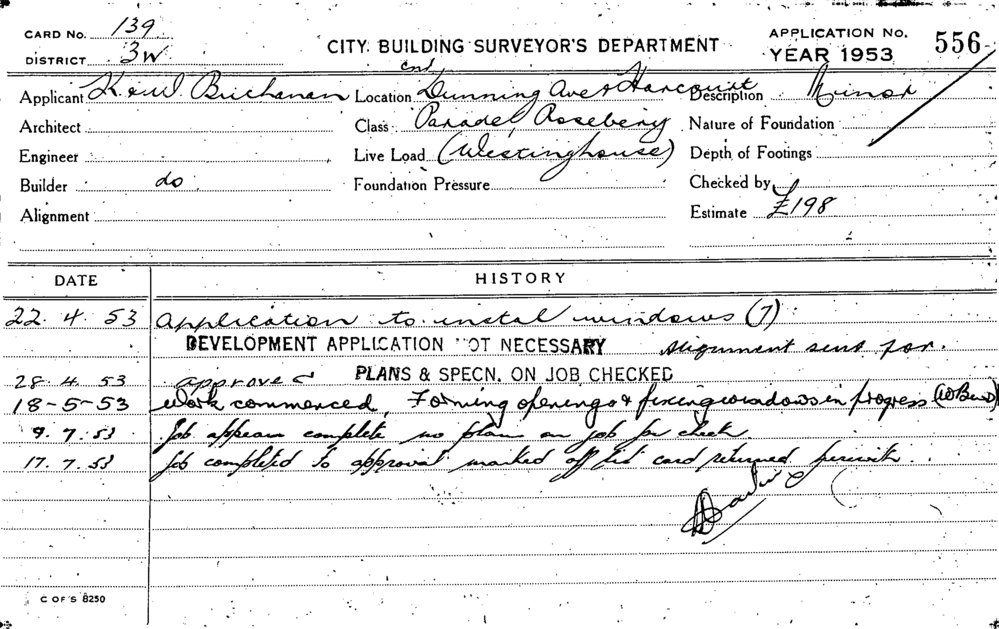 CARD No. 139
DISTRICT 3W
CITY BUILDING SURVEYOR'S DEPARTMENT
APPLICATION No. 556
YEAR 1953
Applicant K & W Buchanan
Location cnr Dunning Ave & Harcourt
Description Minor
Architect
Class Parade, Rosebery
Nature of Foundation
Engineer
Live Load (Westinghouse)
Depth of Footings
Builder do
Foundation Pressure
Checked by
Alignment
Estimate £198
DATE HISTORY
22. 4. 53 Application to instal windows (7)
DEVELOPMENT APPLICATION NOT NECESSARY Alignment sent for.
28. 4. 53 approved PLANS & SPECN. ON JOB CHECKED
18-5-53 Work commenced, Forming openings & fixing windows in progress
9. 7. 53 Job appears complete no plan on job for check
17. 7. 53 Job completed to approval marked off list card returned
C OF S 8250